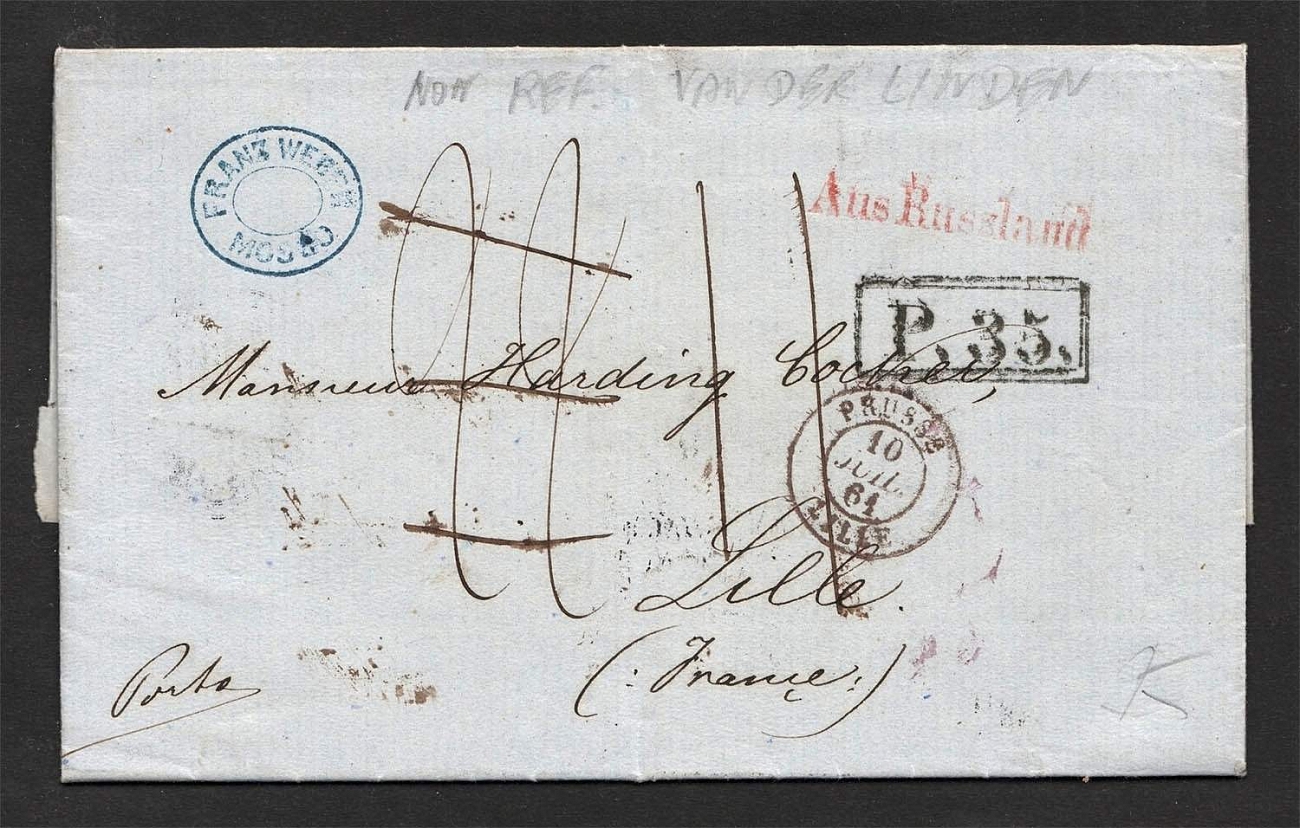 NON REF. VAN DER LINDEN
FRANZ
MOSCO
Aus Russland
P. 35.
Monsieur Harding Cocker,
PRUSSE
10
JUIL.
61
LILLE
Lille.
(: France :)
Porto